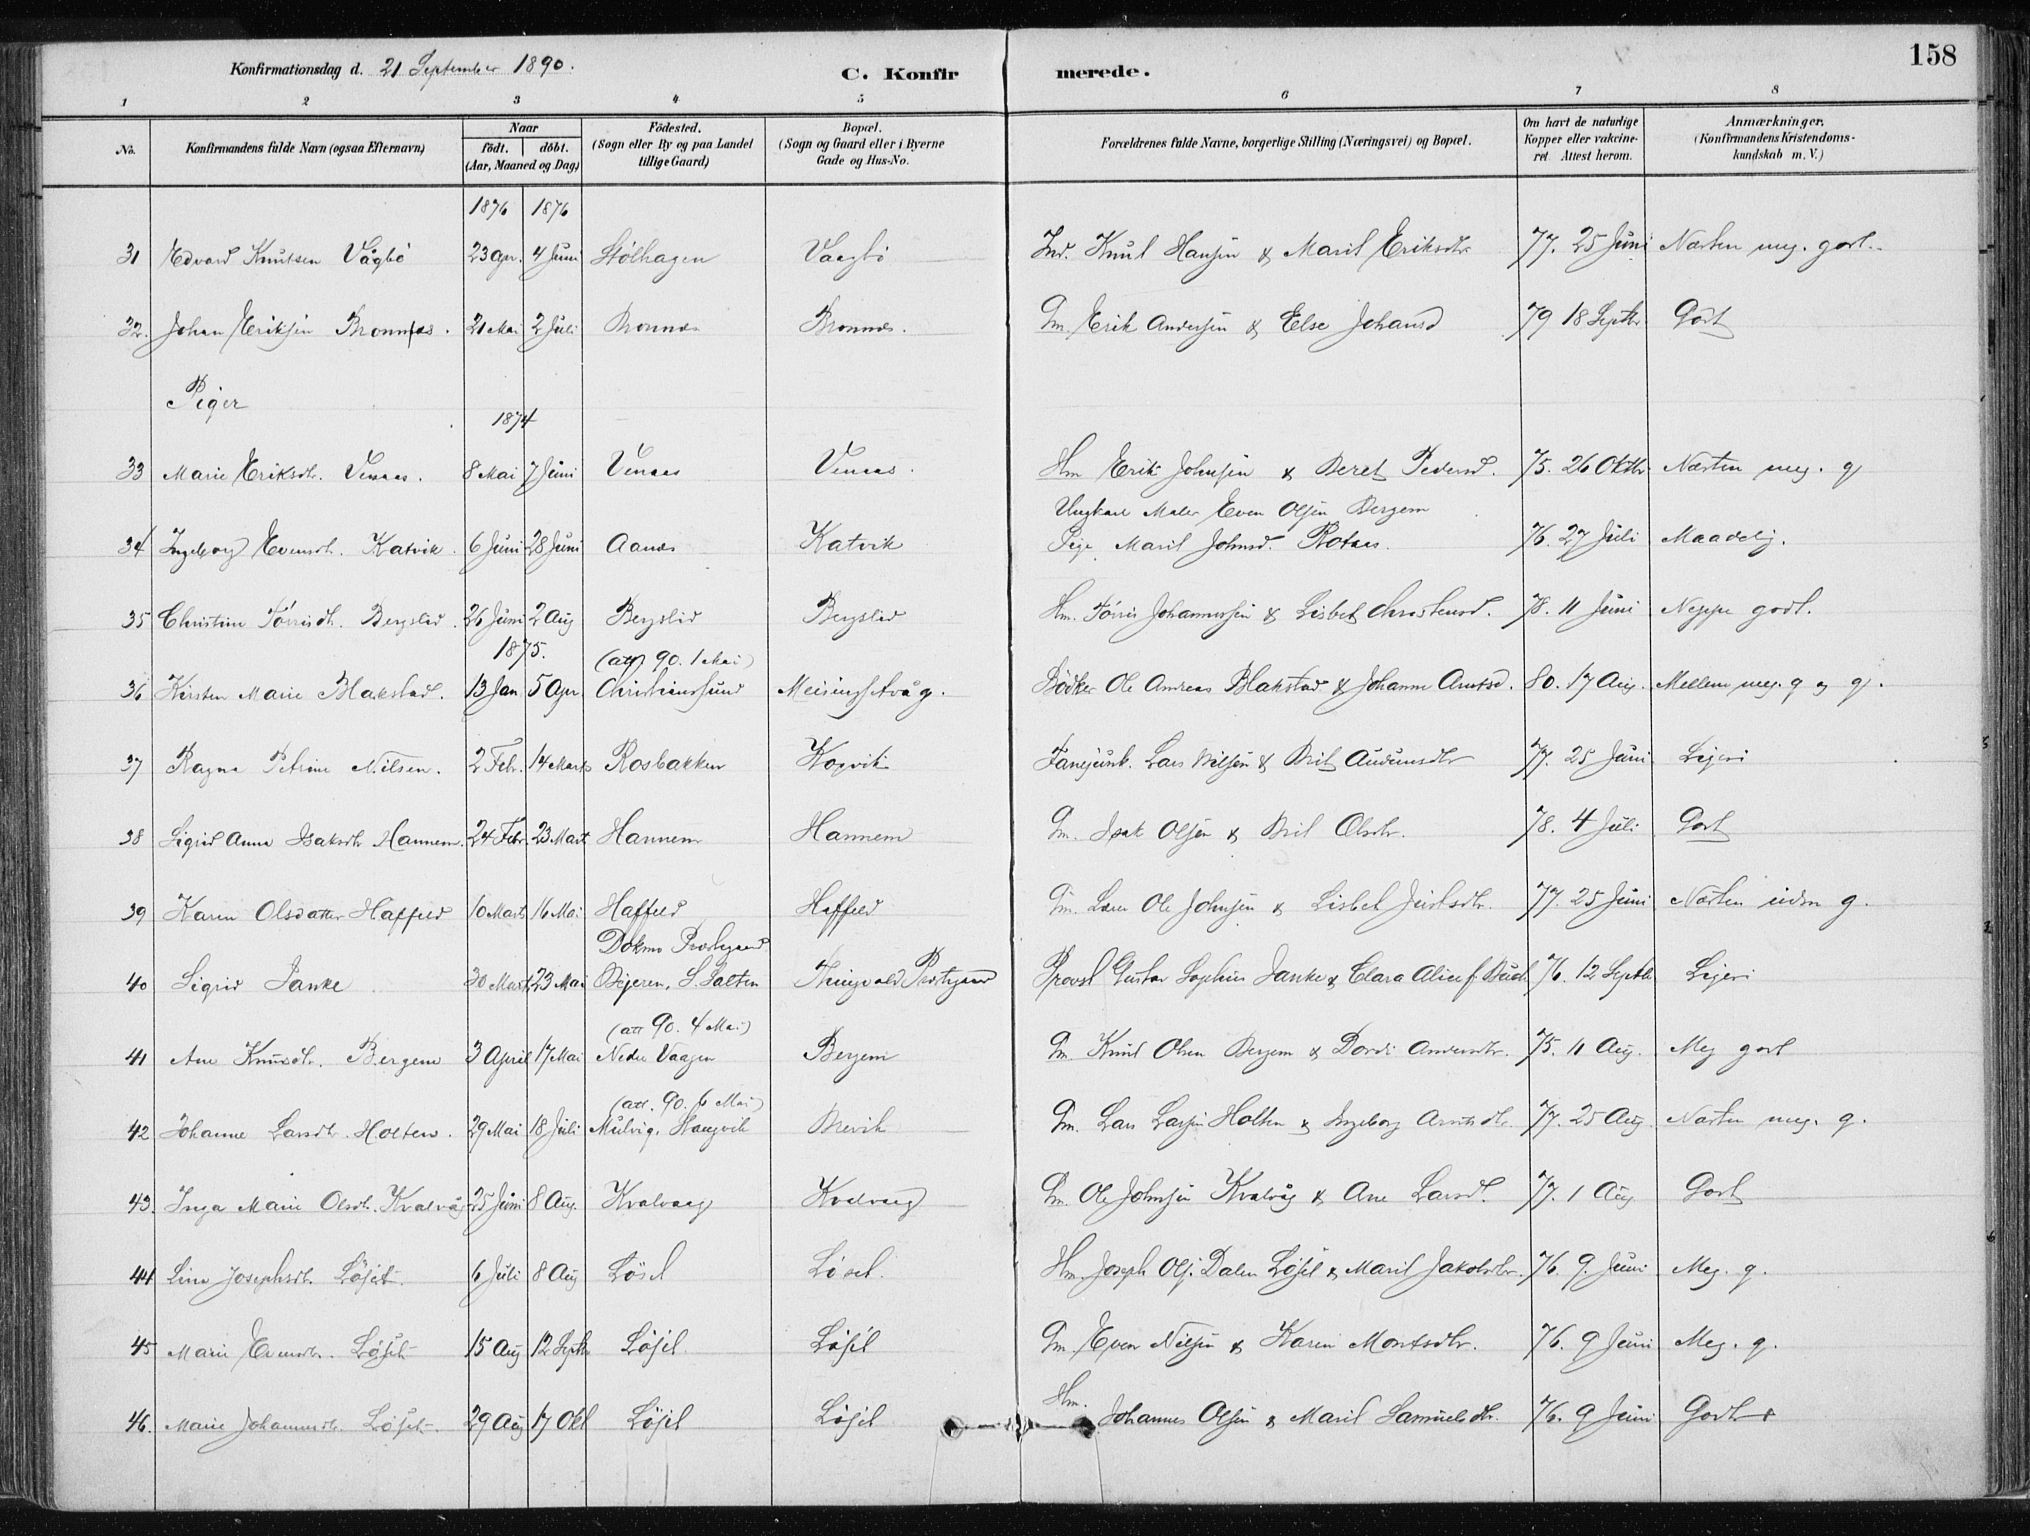 158
Konfirmationsdag d. 21 September 1890.
C. Konfirmerede.
1 2 3 4 5 6 7 8
No. Konfirmandens fulde Navn (ogsaa Efternavn) Naar født. døbt. (Aar, Maaned og Dag) Fødested. (Sogn eller By og paa Landet tillige Gaard) Bopæl. (Sogn og Gaard eller i Byerne Gade og Hus-No. Forældrenes fulde Navne, borgerlige Stilling (Næringsvei) og Bopæl. Om havt de naturlige Kopper eller vakcineret. Attest herom. Anmærkninger. (Konfirmandens Kristendomskundskab m. V.)
1876 1876
31 Edvard Knutsen Vågbø 23 Apr. 4 Juni Stølhagen Vaagbø Ind. Knut Hansen & Marit Eriksdtr 77. 25 Juni Næsten meg. godt.
32. Johan Eriksen Bronnæs. 21 Mai 2 Juli Bronnæs Bronnæs. Gm. Erik Andersen & Else Johansd 79 18 Septbr. Godt
Piger
1874
33 Marie Eriksdtr. Venaas. 8 Mai 7 Juni Venaas Venaas. Hm Erik Johnsen & Beret Pedersd. 75. 26 Oktbr. Næsten meg. g
Ungkarl Maler Even Olsen Bergem
34 Ingeborg Evensdtr. Katvik. 6 Juni 28 Juni Aanæs Katvik Pige Marit Johnsd. Rotaas. 76. 27 Juli Maadelig.
35 Christine Tørrisdtr. Bergslid. 26 Juni 2 Aug Bergslid Bergslid Hm. Tørris Johannessen & Lisbet Christensd. 78. 11 Juni Neppe godt.
1875. (att 90. 1 Mai)
36 Kirsten Marie Blakstad. 13 Jan 5 Apr Christianssund Meisingsetvåg. Bødker Ole Andreas Blakstad & Johanne Arntsd. 80. 17 Aug. Mellem meg. g og g.
37 Ragna Petrine Nilsen. 2 Febr. 14 Marts Rosbakken Kogvik Fanejunk. Lars Nilsen & Brit Audunsdtr 77. 25 Juni Ligesi
38 Sigrid Anna Isaksdtr Hannem. 24 Febr. 23 Marts Hannem Hannem Gm. Isak Olsen & Brit Olsdtr. 78. 4 Juli Godt
39 Karen Olsdatter Haffeld 10 Marts 16 Mai Haffeld Haffeld Gm. Ole Johnsen & Lisbet 77. 25 Juni Næsten g.
Dokmo Præstegaard
40 Sigrid Janke 30 Marts 23 Mai Bejeren, S. Salten Thingvold Præstgaard Provst Gustav Sophus Janke & Clara Alice f. Buch 76. 12 Septbr Ligesi
(att 90. 4 Mai)
41 Ane Knutsdtr. Bergem 3 April 17 Mai Nedre Vaagen Bergem Gm. Knut Olsen Bergem & Dordi Andersdtr. 75. 11 Aug. Meg godt
(att. 90. 6 Mai)
42 Johanne Larsdtr. Holten. 29 Mai 18 Juli Mulvig, Stangvik Brevik Gm. Lars Larsen Holten & Ingeborg Arntsdtr 77. 25 Aug Næsten meg. g.
43. Inga Marie Olsdtr. Kvalvåg 25 Juni 8 Aug. Kvalvaag Kvalvaag Gm. Ole Johnsen Kvalvåg & Ane Larsd. 77. 1 Aug Godt
44 Line Josephsdtr. Løset. 6 Juli 8 Aug Løset Løset. Hm. Joseph Ols. Dalen Løset & Marit Jakobsdtr. 76. 9. Juni Meg. g.
45 Marie Evensdtr. Løset 15 Aug 12 Septbr Løset Løset Gm. Even Nilsen & Karen Montsdtr. 76. 9 Juni Meg. g.
46. Marie Johannesdtr. Løset 29 Aug 17 Okt Løset Løset Hm. Johannes Olsen & Marit Samuelsdtr. 76. 9 Juni Godt